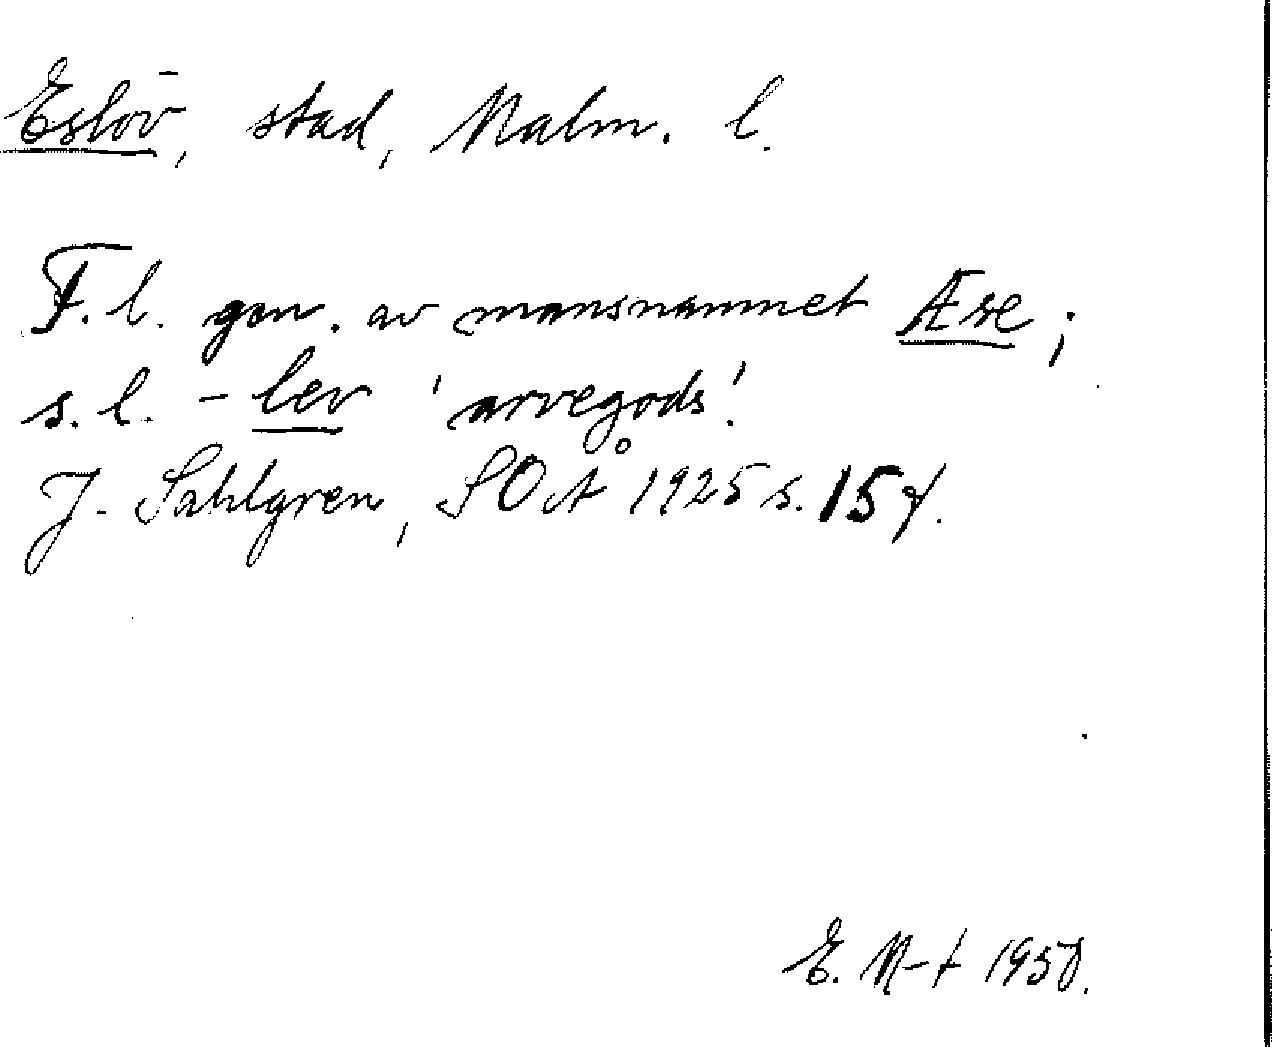 Eslöv, stad, Malm. l.
F. l. gen. av mansnamnet Æse;
s. l. -lev 'arvegods'.
J. Sahlgren, SOÅ 1925 s. 15 f.
E. N-t 1950.